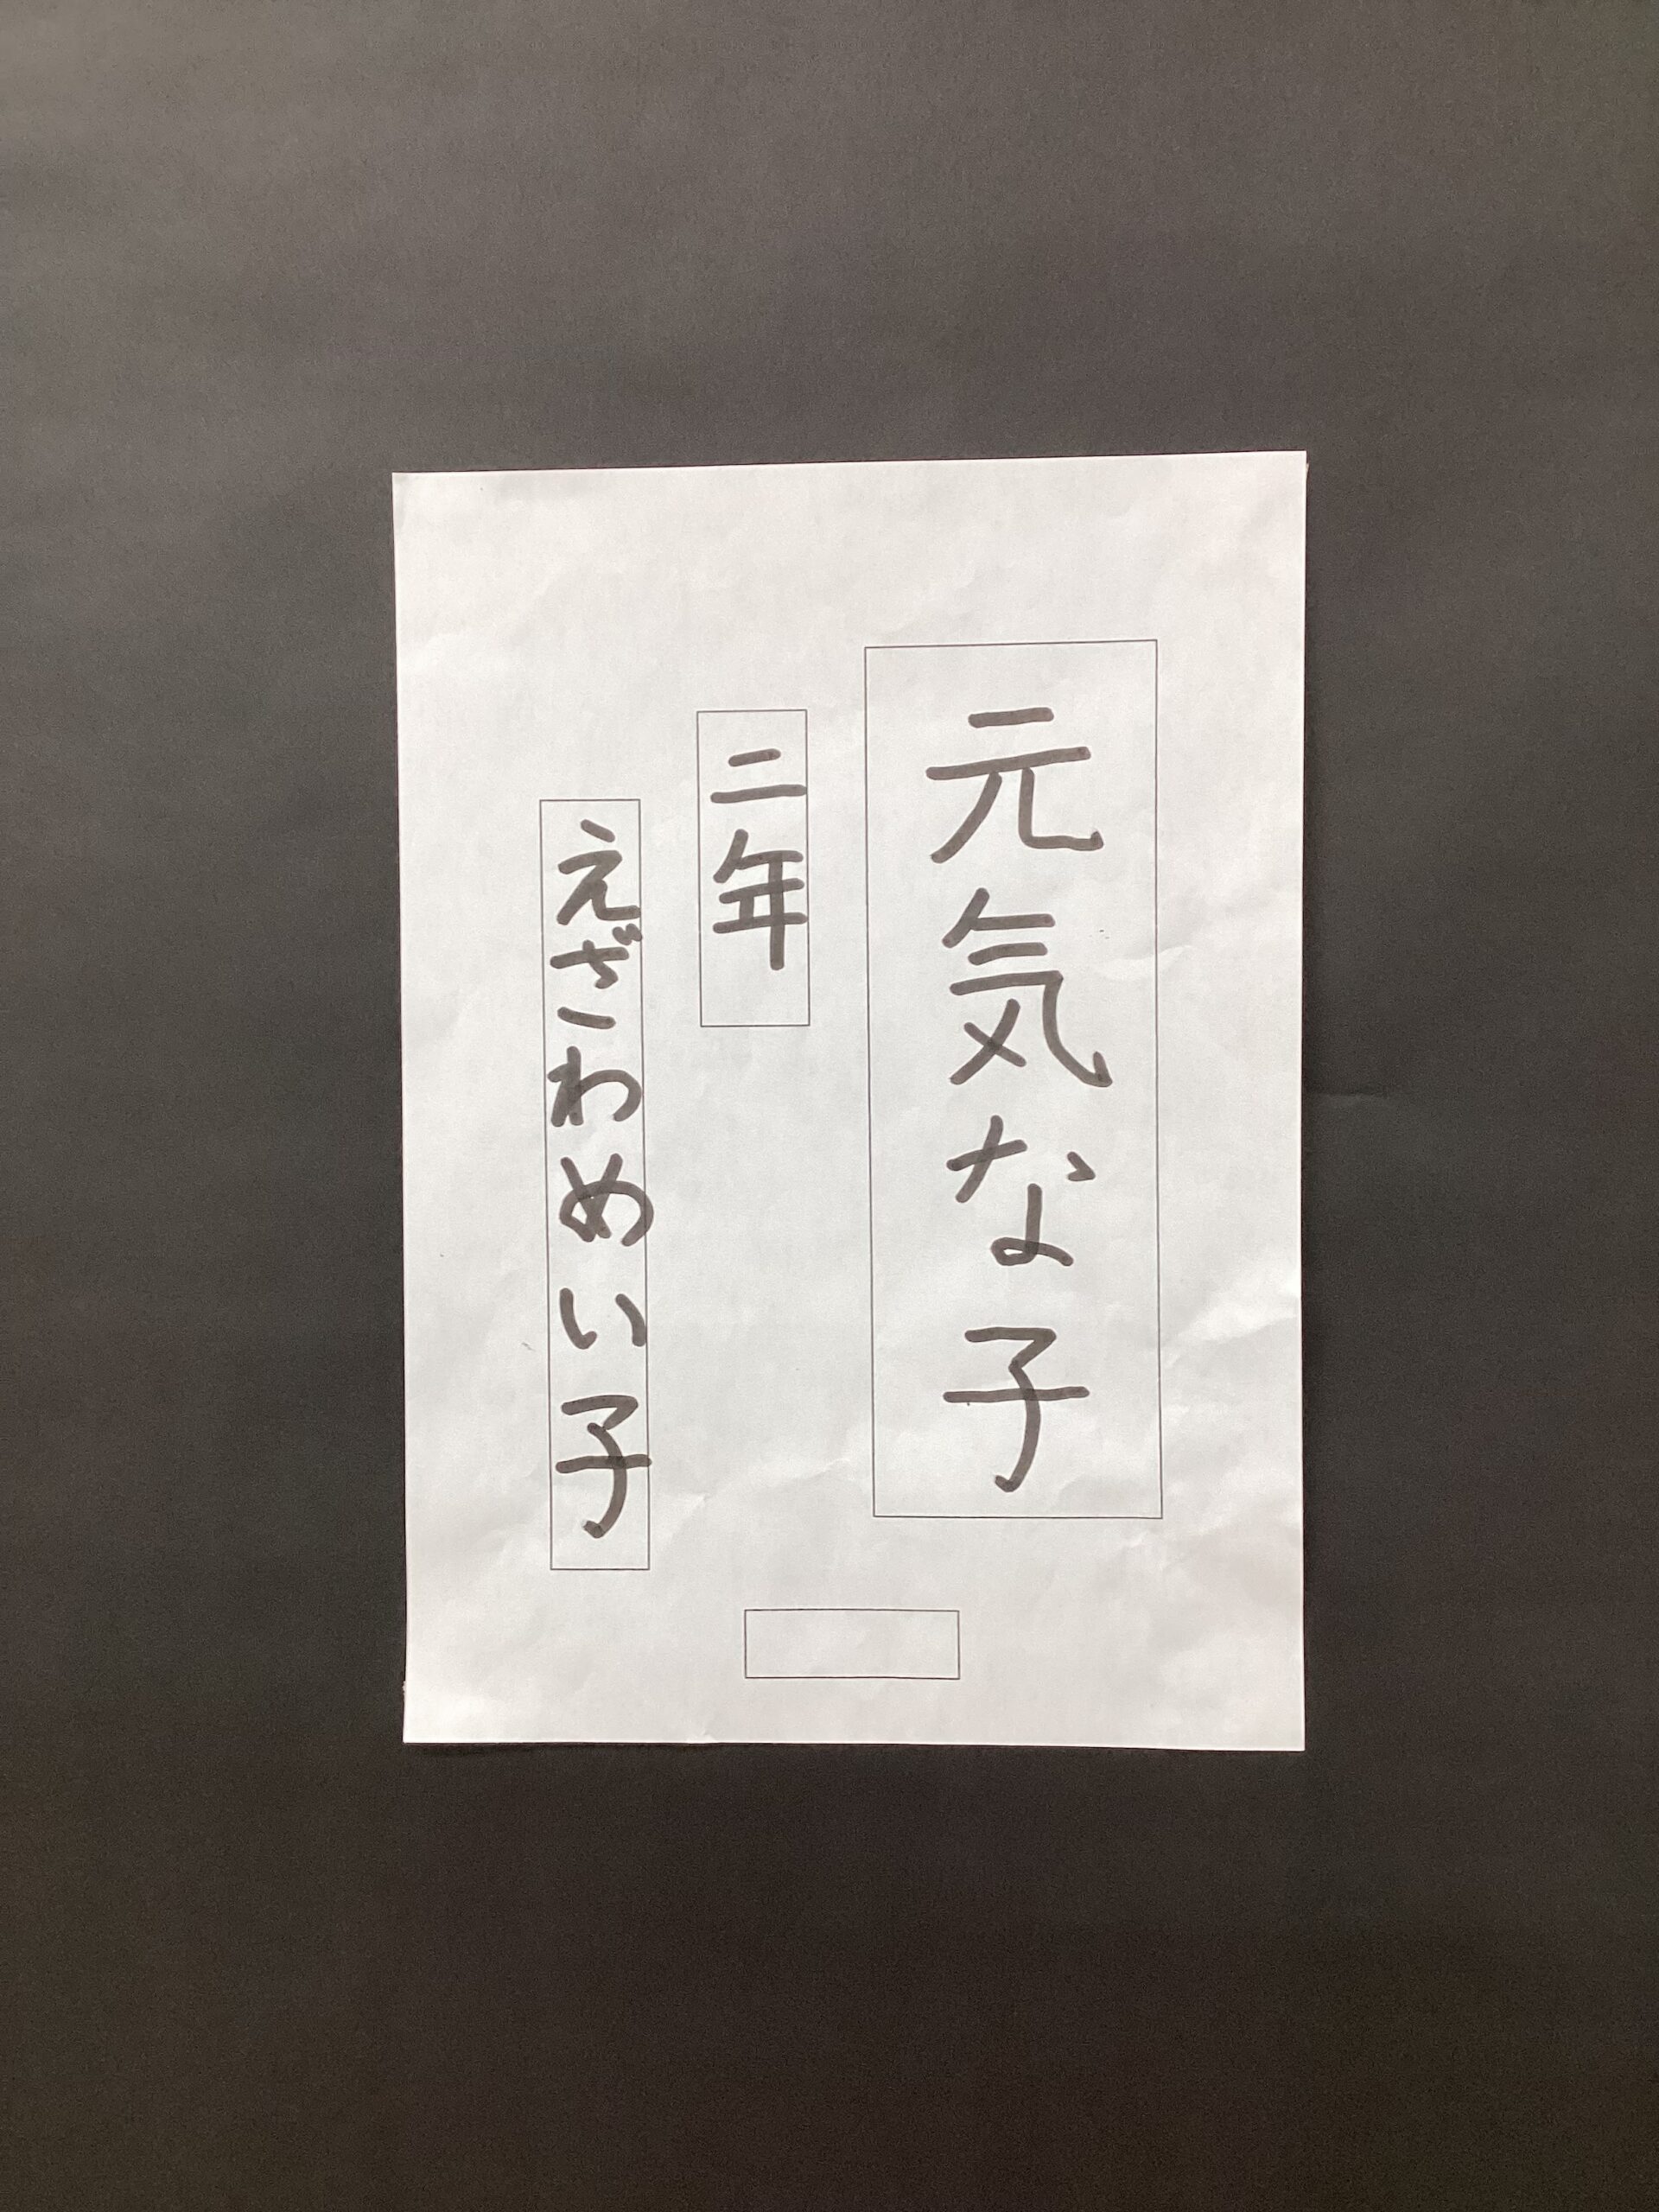 元気な子
二年
えざわめい子